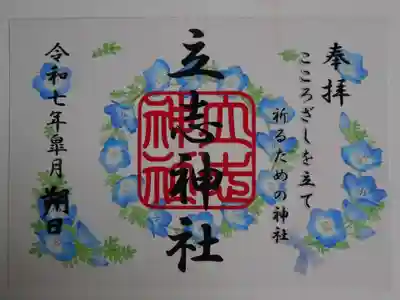 奉拝
こころざしを立て
祈るための神社
立志神社
立志
神社
令和七年皐月朔日